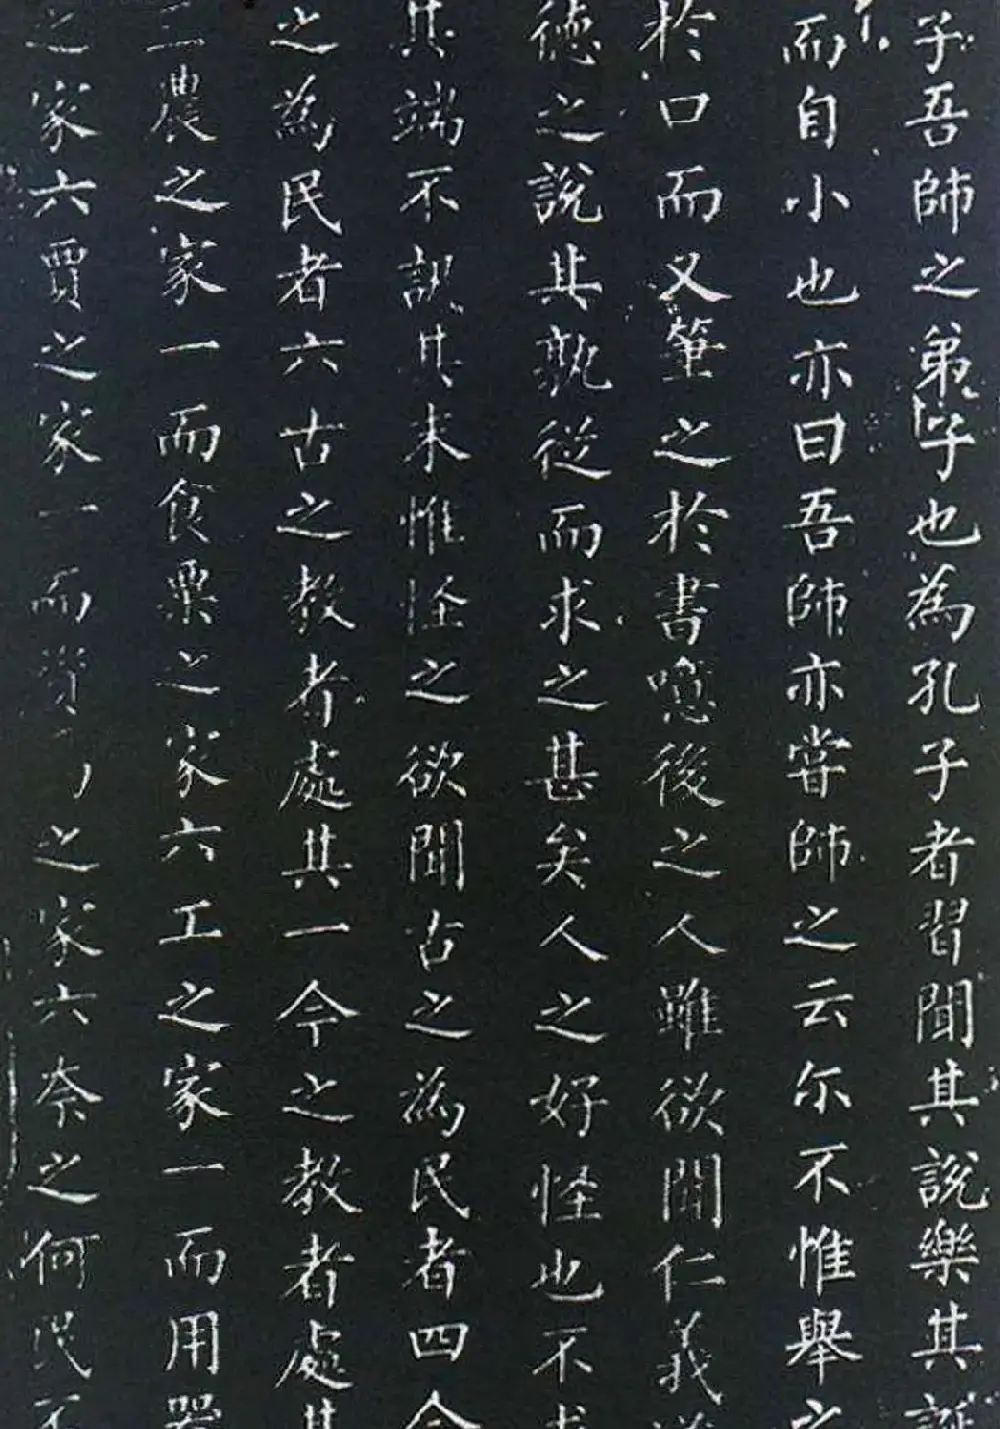 子吾師之弟子也為孔子者習聞其說樂其誕
而自小也亦曰吾師亦嘗師之云尓不惟舉之
於口而又筆之於書噫後之人雖欲聞仁義道
德之說其孰從而求之甚矣人之好怪也不求
其端不訊其末惟怪之欲聞古之為民者四今
之為民者六古之教者處其一今之教者處其
三農之家一而食粟之家六工之家一而用器
之家六賈之家一而資之家六奈之何民不